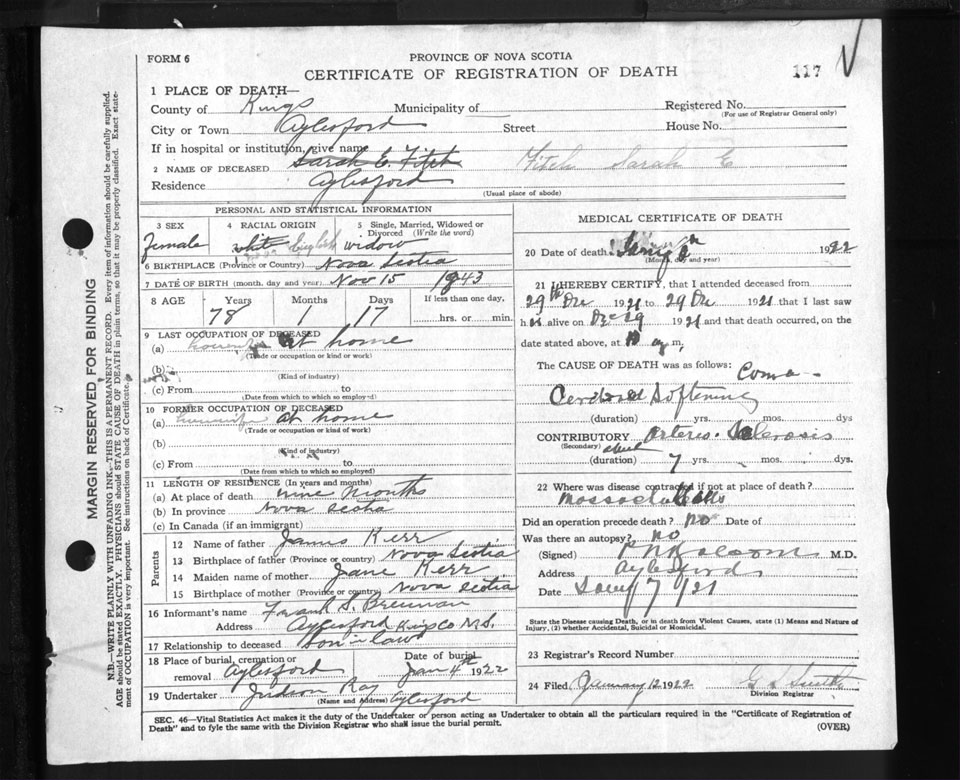 FORM 6
PROVINCE OF NOVA SCOTIA
CERTIFICATE OF REGISTRATION OF DEATH
117
1 PLACE OF DEATH—
County of Kings Municipality of Registered No.
(For use of Registrar General only)
City or Town Aylesford Street House No.
If in hospital or institution, give name
2 NAME OF DECEASED Sarah E. Fitch Fitch Sarah E
Residence Aylesford
(Usual place of abode)
PERSONAL AND STATISTICAL INFORMATION
3 SEX 4 RACIAL ORIGIN 5 Single, Married, Widowed or Divorced (Write the word)
female white English widow
6 BIRTHPLACE (Province or Country) Nova Scotia
7 DATE OF BIRTH (month, day and year) Nov 15 1843
8 AGE Years Months Days If less than one day,
78 1 17 hrs. or min.
9 LAST OCCUPATION OF DECEASED
(a) at home
(Trade or occupation or kind or work)
(b)
(Kind of industry)
(c) From to
(Date from which to which so employed)
10 FORMER OCCUPATION OF DECEASED
(a) at home
(Trade or occupation or kind of work)
(b)
(Kind of industry)
(c) From to
(Date from which to which so employed)
11 LENGTH OF RESIDENCE (In years and months)
(a) At place of death nine months
(b) In province Nova Scotia
(c) In Canada (if an immigrant)
Parents
12 Name of father James Kerr
13 Birthplace of father (Province or country) Nova Scotia
14 Maiden name of mother Jane Kerr
15 Birthplace of mother (Province or country) Nova Scotia
16 Informant's name Frank S. Brennan
Address Aylesford Kings Co N.S.
17 Relationship to deceased son in law
18 Place of burial, cremation or removal Aylesford Date of burial Jan 4th 1922
19 Undertaker Judson Ray Aylesford
(Name and Address)
MEDICAL CERTIFICATE OF DEATH
20 Date of death 1922
(Month, day and year)
21 I HEREBY CERTIFY, that I attended deceased from
29th Dec 1921 to 29 Dec 1921 that I last saw
h alive on Dec 29 1921 and that death occurred, on the
date stated above, at 10 a m,
The CAUSE OF DEATH was as follows: Coma
Cerebral Softening
(duration) yrs. mos. dys
CONTRIBUTORY Arterio-Sclerosis
(Secondary) about
(duration) 7 yrs. mos. dys.
22 Where was disease contracted if not at place of death?
Massachusetts
Did an operation precede death? no Date of
Was there an autopsy? no
(Signed) M.D.
Address Aylesford
Date Jany 7 /21
State the Disease causing Death, or in death from Violent Causes, state (1) Means and Nature of Injury, (2) whether Accidental, Suicidal or Homicidal.
23 Registrar's Record Number
24 Filed January 12 1922 G S Smith
Division Registrar
SEC. 46—Vital Statistics Act makes it the duty of the Undertaker or person acting as Undertaker to obtain all the particulars required in the "Certificate of Registration of
Death" and to fyle the same with the Division Registrar who shall issue the burial permit. (OVER)
MARGIN RESERVED FOR BINDING
N.B.—WRITE PLAINLY WITH UNFADING INK, THIS IS A PERMANENT RECORD. Every item of information should be carefully supplied.
AGE should be stated EXACTLY. PHYSICIANS should STATE CAUSE OF DEATH in plain terms, so that it may be properly classified. Exact state-
ment of OCCUPATION is very important. See instructions on back of Certificate.